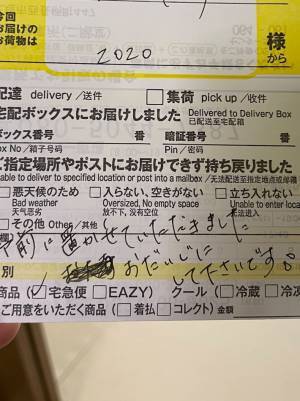 今回
お届けの
お荷物は
様
から
2020
配達 delivery／送件 □集荷 pick up／收件
宅配ボックスにお届けしました Delivered to Delivery Box
已配送至宅配箱
ボックス番号 番 暗証番号 番
Box No／箱子号码 Pin／密码
ご指定場所やポストにお届けできず持ち戻りました
Unable to deliver to specified location or post into a mailbox／无法配送至指定地点或邮箱
□悪天候のため □入らない、空きがない □立ち入れない
Bad weather Oversized, No empty space Unable to enter
天气恶劣 放不下, 没有空位 无法进入
□その他 Other／其他
前に置かせていただきました
おだいじに
してください。
別
商品 (☑宅急便 □EAZY) クール (□冷蔵 □冷凍
ご用意をいただく商品 (□着払 □コレクト) 金額